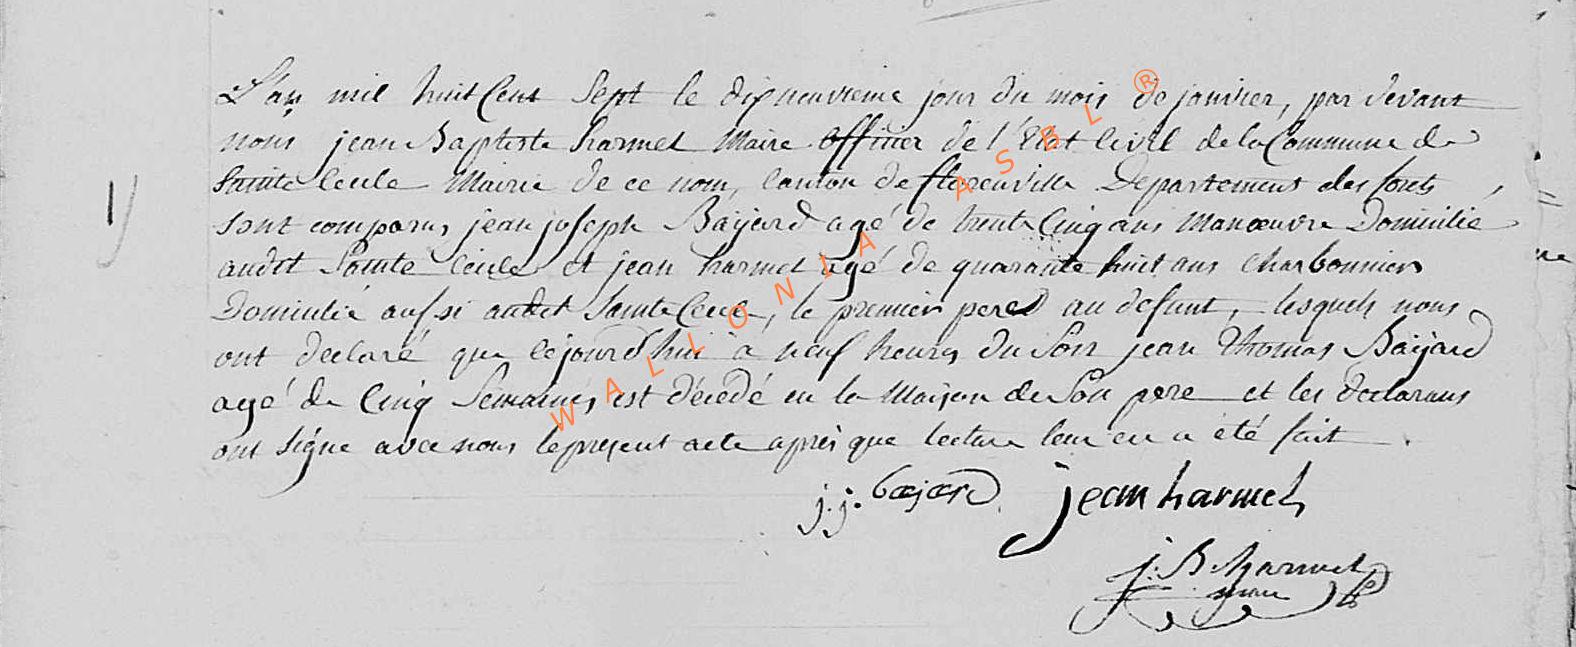 L'an mil huit Cent Sept le dixneuvieme jour du mois de janvier, par devant
nous jean Baptiste harmel Maire officier de l'Etat Civil de la Commune de
Sainte Cecile Mairie de ce nom, Canton de florenville Departement des forets
sont comparus jean joseph Baijard agé de trente Cinq ans Manœuvre Domicilié
audit Sainte Cecile et jean harmel agé de quarante huit ans Charbonnier
Domicilié aussi audit Sainte Cecile, le premier pere au defunt, lesquels nous
ont declaré que cejourd'hui a neuf heures du Soir jean Thomas Baijard
agé de Cinq Semaines est décedé en la Maison de Son pere et les declarans
ont signé avec nous le present acte après que lecture leur en a été fait.
j. j. Baijard jean harmel
j. B. Harmel
maire
1)
WALLONIA ASBL ®